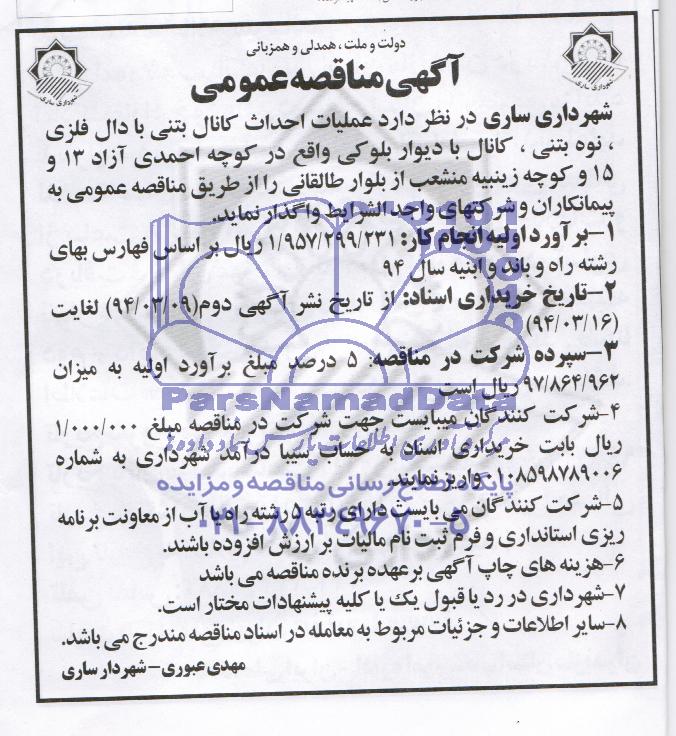 دولت و ملت، همدلی و همزبانی
آگهی مناقصه عمومی
شهرداری ساری
شهرداری ساری
شهرداری ساری در نظر دارد عملیات احداث کانال بتنی با دال فلزی
، نوه بتنی ، کانال با دیوار بلوکی واقع در کوچه احمدی آزاد ۱۳ و
۱۵ و کوچه زینبیه منشعب از بلوار طالقانی را از طریق مناقصه عمومی به
پیمانکاران و شرکتهای واجد الشرایط واگذار نماید.
۱-برآورد اولیه انجام کار: ۱/۹۵۷/۲۹۹/۲۳۱ ریال بر اساس فهارس بهای
رشته راه و باند و ابنیه سال ۹۴
۲-تاریخ خریداری اسناد: از تاریخ نشر آگهی دوم(۹۴/۰۳/۰۹) لغایت
(۹۴/۰۳/۱۶)
۳-سپرده شرکت در مناقصه: ۵ درصد مبلغ برآورد اولیه به میزان
۹۷/۸۶۴/۹۶۲ ریال است
ParsNamadData
۴-شرکت کنندگان میبایست جهت شرکت در مناقصه مبلغ ۱/۰۰۰/۰۰۰
ریال بابت خریداری اسناد به حساب سیبا درآمد شهرداری به شماره
۰۱۰۸۵۹۸۷۸۹۰۰۶ واریز نمایند.
پایگاه اطلاع رسانی مناقصه و مزایده
۵-شرکت کنندگان می بایست دارای رتبه ۵ رشته راه یا آب از معاونت برنامه
۰۲۱-۸۸۳۴۹۶۷۰-۵
ریزی استانداری و فرم ثبت نام مالیات بر ارزش افزوده باشند.
۶-هزینه های چاپ آگهی بر عهده برنده مناقصه می باشد
۷-شهرداری در رد یا قبول یک یا کلیه پیشنهادات مختار است.
۸-سایر اطلاعات و جزئیات مربوط به معامله در اسناد مناقصه مندرج می باشد.
مهدی عبوری-شهردار ساری